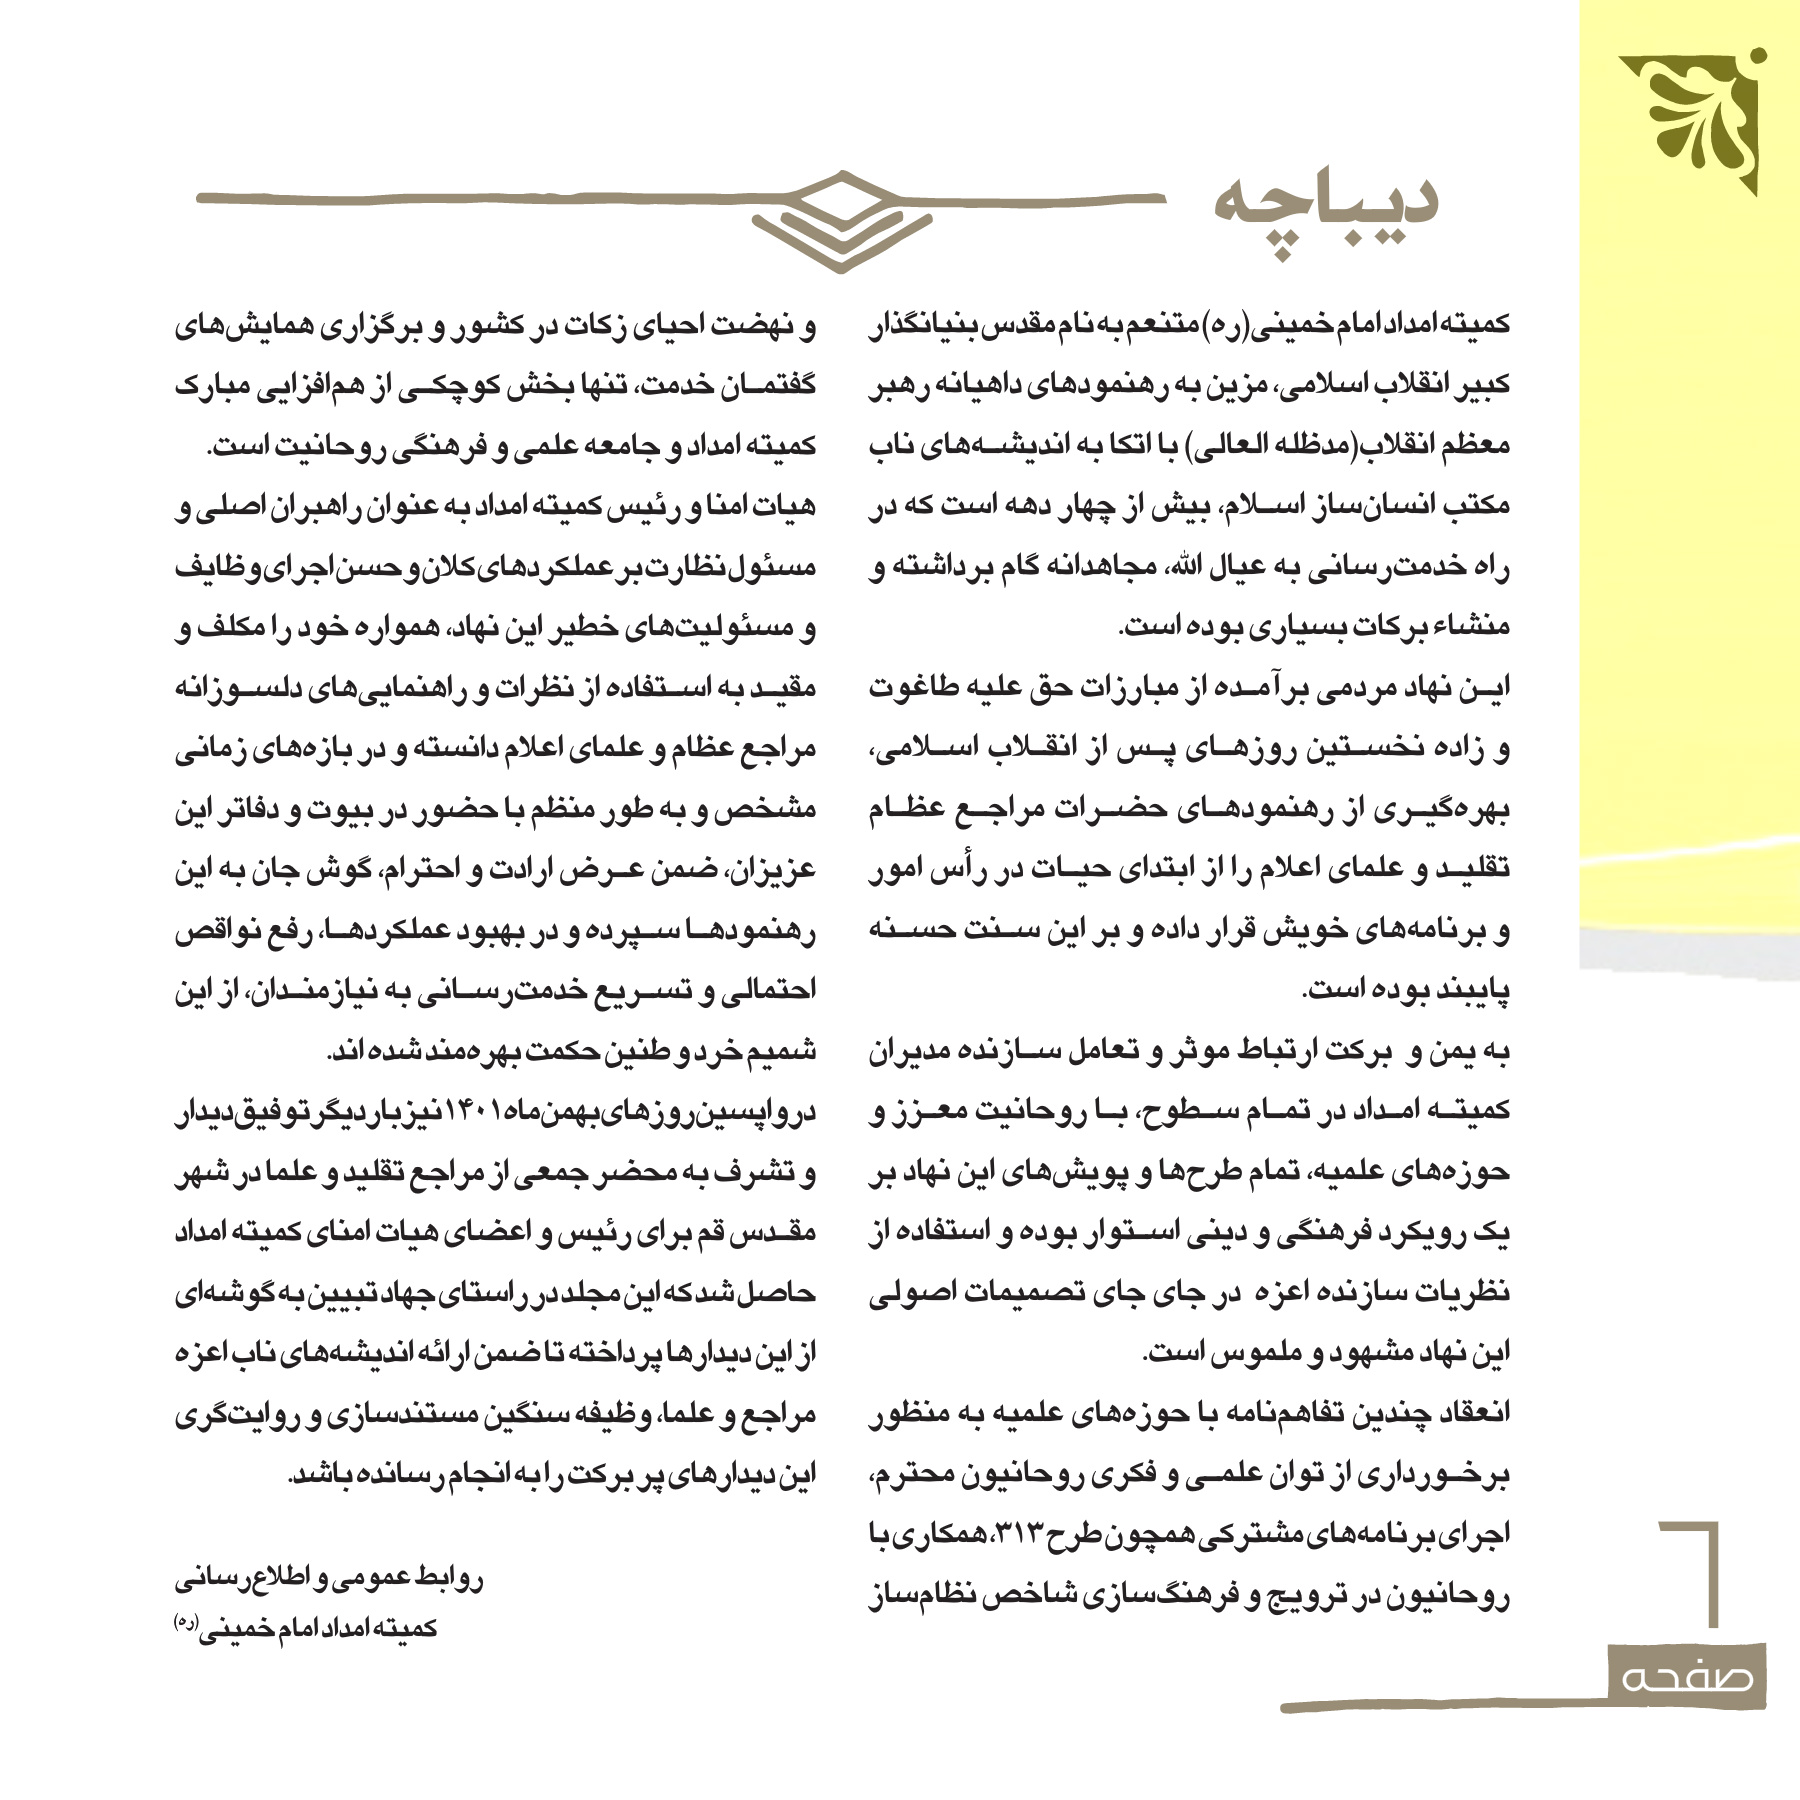 دیباچه
کمیته امداد امام خمینی(ره) متنعم به نام مقدس بنیانگذار
کبیر انقلاب اسلامی، مزین به رهنمودهای داهیانه رهبر
معظم انقلاب(مدظله العالی) با اتکا به اندیشه‌های ناب
مکتب انسان‌ساز اسلام، بیش از چهار دهه است که در
راه خدمت‌رسانی به عیال الله، مجاهدانه گام برداشته و
منشاء برکات بسیاری بوده است.
این نهاد مردمی برآمده از مبارزات حق علیه طاغوت
و زاده نخستین روزهای پس از انقلاب اسلامی،
بهره‌گیری از رهنمودهای حضرات مراجع عظام
تقلید و علمای اعلام را از ابتدای حیات در رأس امور
و برنامه‌های خویش قرار داده و بر این سنت حسنه
پایبند بوده است.
به یمن و برکت ارتباط موثر و تعامل سازنده مدیران
کمیته امداد در تمام سطوح، با روحانیت معزز و
حوزه‌های علمیه، تمام طرح‌ها و پویش‌های این نهاد بر
یک رویکرد فرهنگی و دینی استوار بوده و استفاده از
نظریات سازنده اعزه در جای جای تصمیمات اصولی
این نهاد مشهود و ملموس است.
انعقاد چندین تفاهم‌نامه با حوزه‌های علمیه به منظور
برخورداری از توان علمی و فکری روحانیون محترم،
اجرای برنامه‌های مشترکی همچون طرح ۳۱۳، همکاری با
روحانیون در ترویج و فرهنگ‌سازی شاخص نظام‌ساز
و نهضت احیای زکات در کشور و برگزاری همایش‌های
گفتمان خدمت، تنها بخش کوچکی از هم‌افزایی مبارک
کمیته امداد و جامعه علمی و فرهنگی روحانیت است.
هیات امنا و رئیس کمیته امداد به عنوان راهبران اصلی و
مسئول نظارت بر عملکردهای کلان و حسن اجرای وظایف
و مسئولیت‌های خطیر این نهاد، همواره خود را مکلف و
مقید به استفاده از نظرات و راهنمایی‌های دلسوزانه
مراجع عظام و علمای اعلام دانسته و در بازه‌های زمانی
مشخص و به طور منظم با حضور در بیوت و دفاتر این
عزیزان، ضمن عرض ارادت و احترام، گوش جان به این
رهنمودها سپرده و در بهبود عملکردها، رفع نواقص
احتمالی و تسریع خدمت‌رسانی به نیازمندان، از این
شمیم خرد و طنین حکمت بهره‌مند شده اند.
در واپسین روزهای بهمن‌ماه ۱۴۰۱ نیز بار دیگر توفیق دیدار
و تشرف به محضر جمعی از مراجع تقلید و علما در شهر
مقدس قم برای رئیس و اعضای هیات امنای کمیته امداد
حاصل شد که این مجلد در راستای جهاد تبیین به گوشه‌ای
از این دیدارها پرداخته تا ضمن ارائه اندیشه‌های ناب اعزه
مراجع و علما، وظیفه سنگین مستندسازی و روایت‌گری
این دیدارهای پر برکت را به انجام رسانده باشد.
روابط عمومی و اطلاع‌رسانی
کمیته امداد امام خمینی(ره)
٦
صفحه